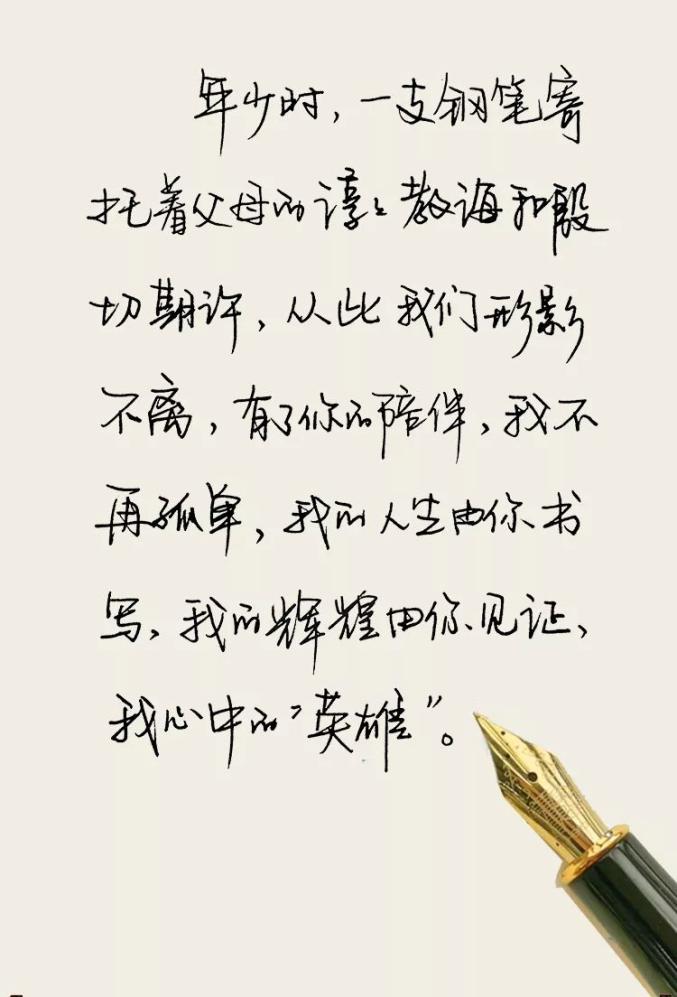 年少时，一支钢笔寄
托着父母的谆谆教诲和殷
切期许，从此我们形影
不离，有了你的陪伴，我不
再孤单，我的人生由你书
写，我的辉煌由你见证，
我心中的“英雄”。